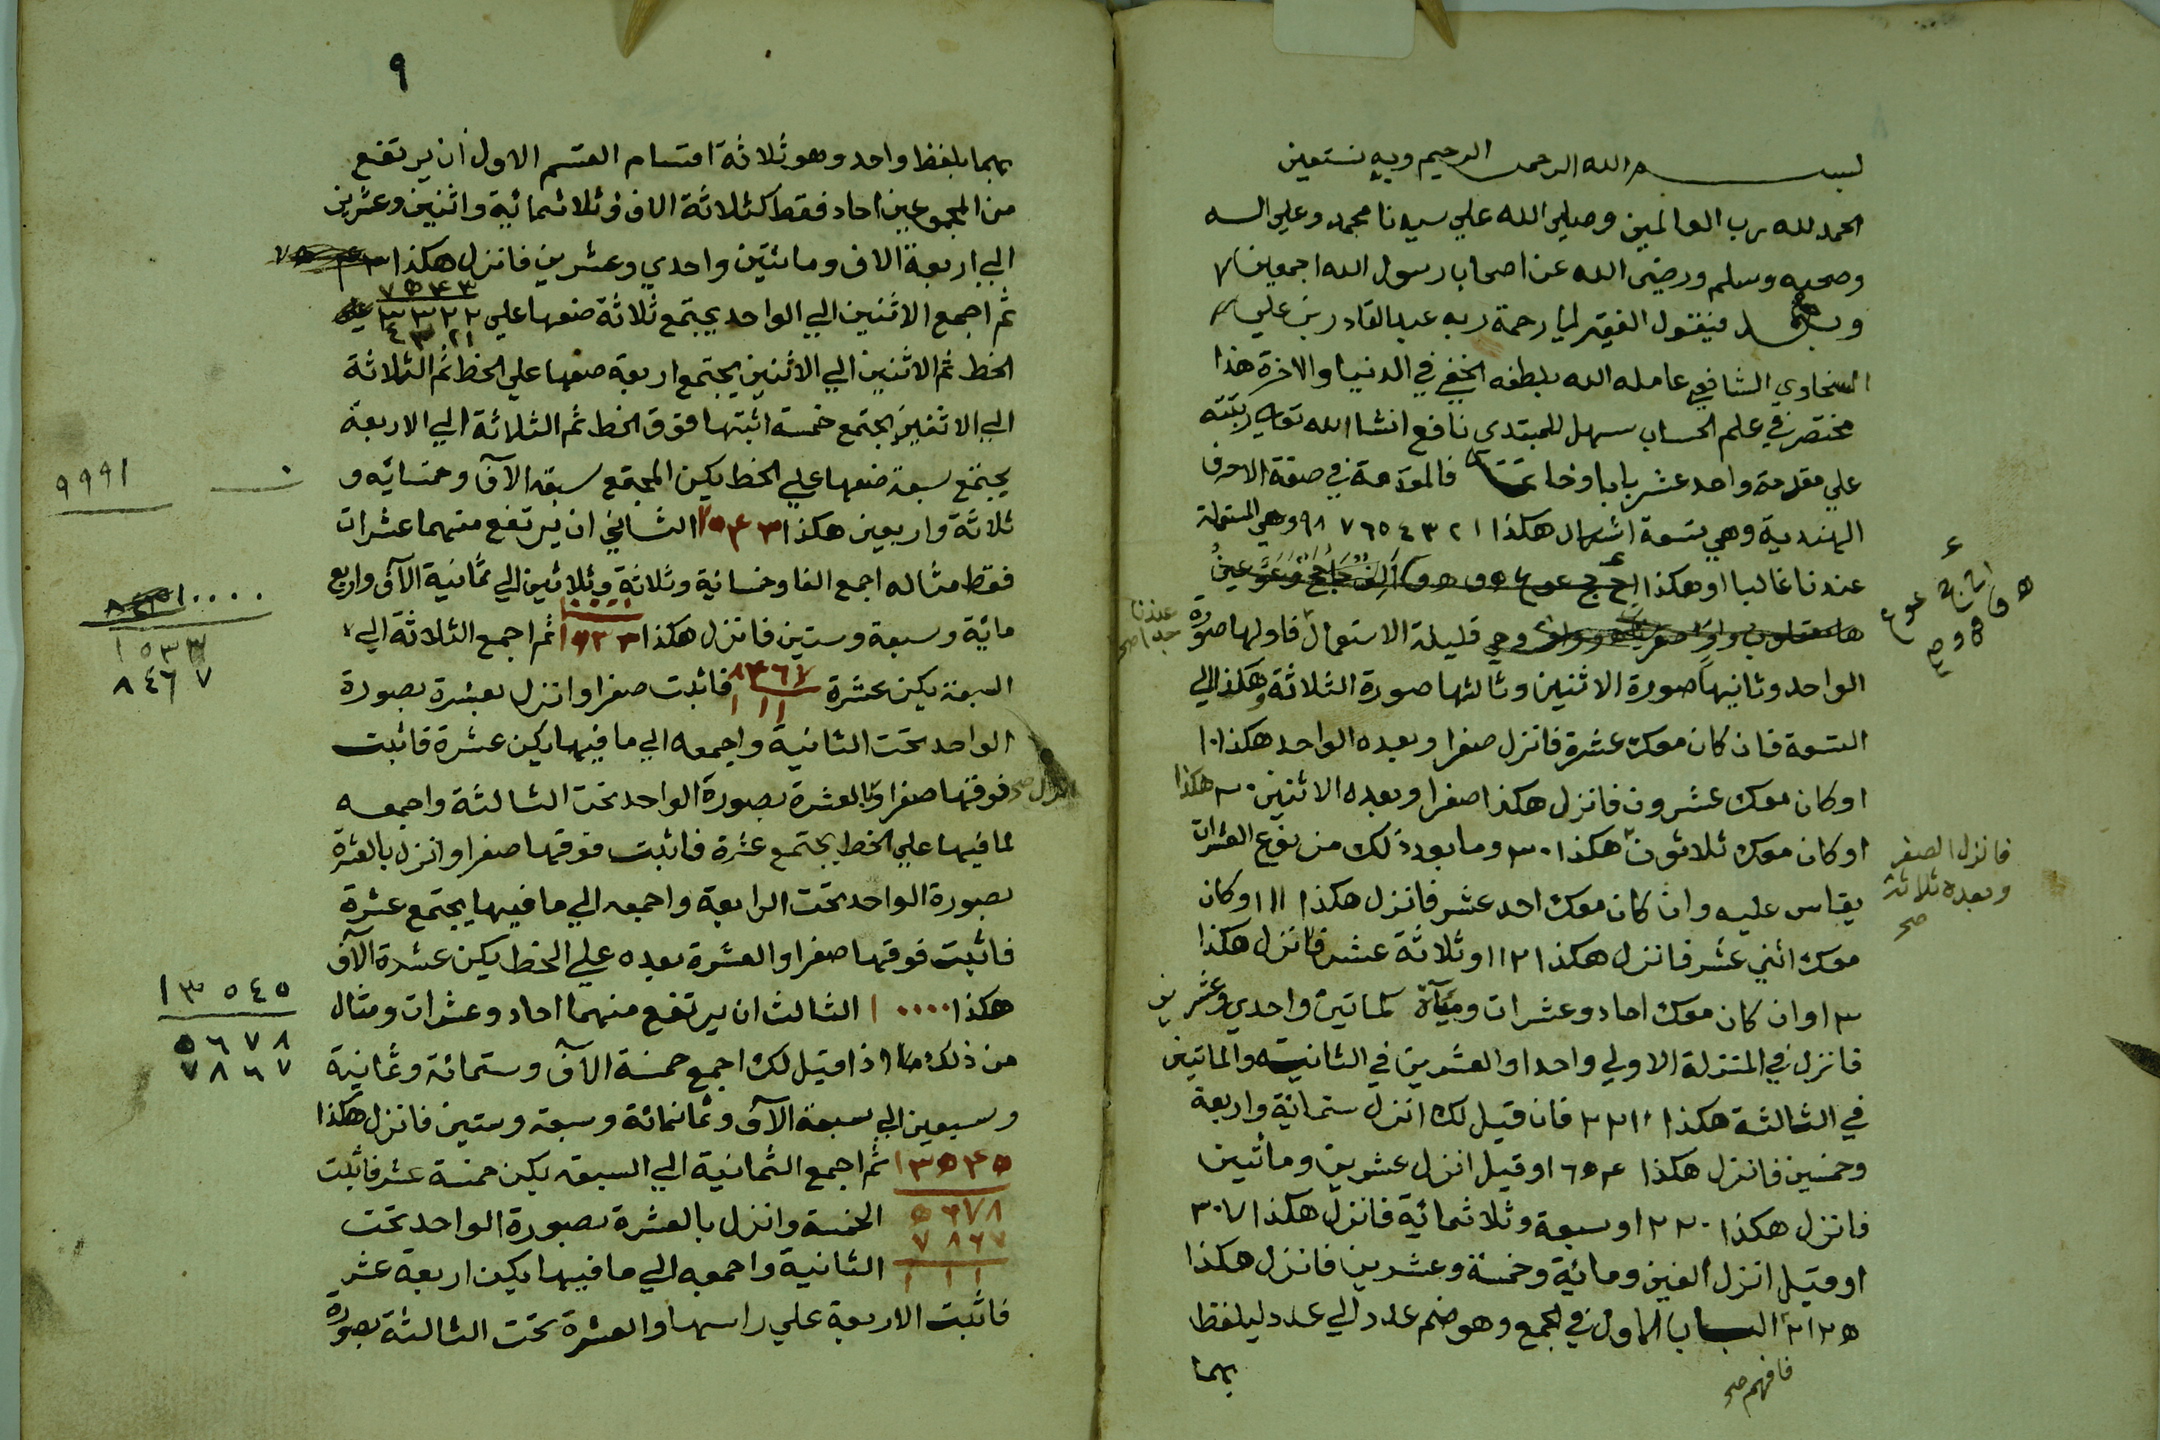 بسم الله الرحمن الرحيم وبه نستعين
الحمد لله رب العالمين وصلي الله علي سيدنا محمد وعلي اله
وصحبه وسلم ورضي الله عن اصحاب رسول الله اجمعين
وبعد فيقول الفقير الي رحمة ربه عبد القادر بن علي
السخاوي الشافعي عامله الله بلطفه الخفي في الدنيا والاخرة هذا
مختصر في علم الحساب سهل للمبتدي نافع انشا الله تعالي رتبته
علي مقدمة واحد عشر بابا وخاتمة فالمقدمة في صفة الاحرف
الهندية وهي تسعة اشكال هكذا ١ ٢ ٣ ٤ ٥ ٦ ٧ ٨ ٩ وهي المستعملة
عندنا غالبا او هكذا
وهي قليلة الاستعمال فاولها صورة
عندنا جدا صح
الواحد وثانيها صورة الاثنين وثالثها صورة الثلاثة وهكذا الي
التسعة فان كان معك عشرة فانزل صفرا وبعده الواحد هكذا ١٠
او كان معك عشرون فانزل هكذا صفرا وبعده الاثنين ٢٠ هكذا
او كان معك ثلاثون هكذا ٣٠ وما بعد ذلك من نوع العشرات
فانزل الصفر
وبعده ثلاثة
صح
يقاس عليه وان كان معك احد عشر فانزل هكذا ١١ او كان
معك اثني عشر فانزل هكذا ١٢ او ثلاثة عشر فانزل هكذا
١٣ وان كان معك احاد وعشرات ومآة كماتين واحدي وعشرين
فانزل في المنزلة الاولي واحدا والعشرين في الثانية والماتين
في الثالثة هكذا ٢٢١ فان قيل لك انزل ستمائة واربعة
وخمسين فانزل هكذا ٦٥٤ او قيل انزل عشرين ومائتين
فانزل هكذا ٢٢٠ او سبعة وثلاثمائة فانزل هكذا ٣٠٧
او قيل انزل الفين ومائة وخمسة وعشرين فانزل هكذا
٢١٢٥ الباب الاول في الجمع وهو ضم عدد الي عدد ليلفظ
فافهم صح
بهما
٩
بهما بلفظ واحد وهو ثلاثة اقسام القسم الاول ان يرتفع
من المجموعين احاد فقط كثلاثة الاف وثلاثمائة واثنين وعشرين
الي اربعة الاف ومائتين واحدي وعشرين فانزل هكذا
٧٥٤٣
ثم اجمع الاثنين الي الواحد يجتمع ثلاثة ضعها علي ٣٣٢٢
٤٢٢١
الخط ثم الاثنين الي الاثنين يجتمع اربعة ضعها علي الخط ثم الثلاثة
الي الاثنين يجتمع خمسة اثبتها فوق الخط ثم الثلاثة الي الاربعة
يجتمع سبعة ضعها علي الخط يكن المجتمع سبعة الآف وخمسائه و
٩٩٩١
ثلاثة واربعين هكذا ٧٥٤٣ الثاني ان يرتفع منهما عشرات
فقط مثاله اجمع الفا وخمسائة وثلاثة وثلاثين الي ثمانية الآف واربع
١٠٠٠٠
مائة وسبعة وستين فانزل هكذا ١٥٣٣ ثم اجمع الثلاثة الي
١٥٣٣
٨٤٦٧
السبعة يكن عشرة ٨٤٦٧ فاثبت صفرا وانزل بعشرة بصورة
١١١
الواحد تحت الثانية واجمعه الي ما فيها يكن عشرة فاثبت
فوقها صفرا والعشرة بصورة الواحد تحت الثالثة واجمعه
لما فيها علي الخط يجتمع عشرة فاثبت فوقها صفرا وانزل بالعشرة
بصورة الواحد تحت الرابعة واجمعه الي ما فيها يجتمع عشرة
فاثبت فوقها صفرا والعشرة بعده علي الخط يكن عشرة الآف
هكذا ١٠٠٠٠ الثالث ان يرتفع منهما احاد وعشرات ومثال
١٣٥٤٥
٥٦٧٨
٧٨٦٧
من ذلك ما اذا قيل لك اجمع خمسة الآف وستمائة وثمانية
وسبعين الي سبعة الآف وثمانمائة وسبعة وستين فانزل هكذا
١٣٥٤٥ ثم اجمع الثمانية الي السبعة يكن خمسة عشر فاثبت
٥٦٧٨ الخمسة وانزل بالعشرة بصورة الواحد تحت
٧٨٦٧
١١١ الثانية واجمعه الي ما فيها يكن اربعة عشر
فاثبت الاربعة علي راسها والعشرة تحت الثالثة بصورة